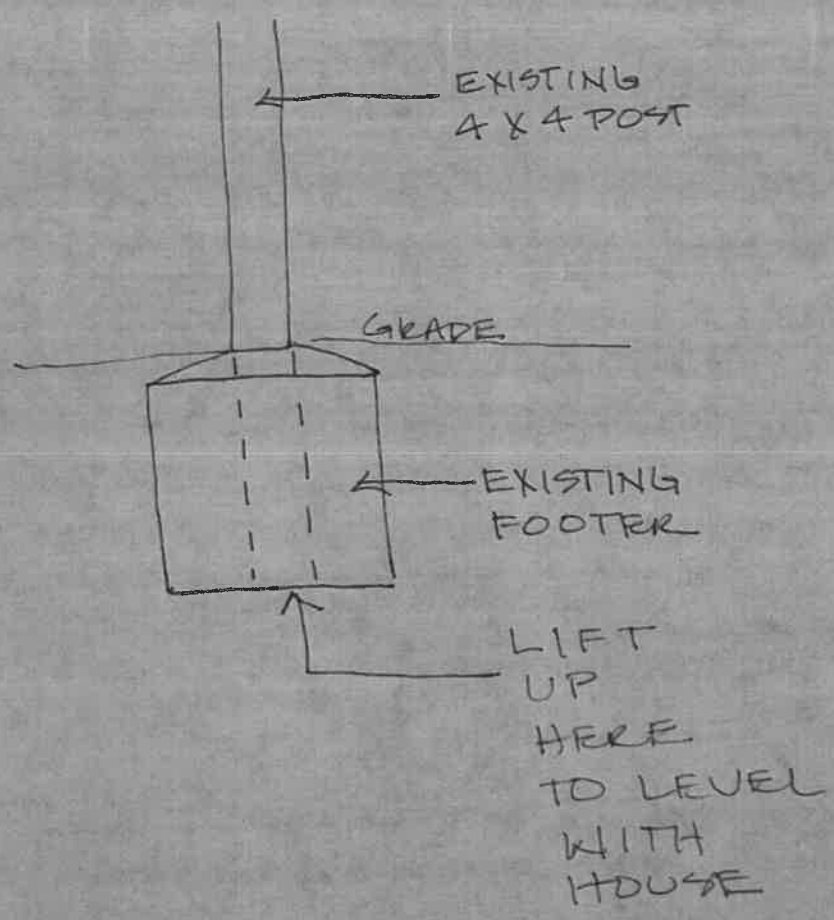 EXISTING
4 X 4 POST
GRADE
EXISTING
FOOTER
LIFT
UP
HERE
TO LEVEL
WITH
HOUSE